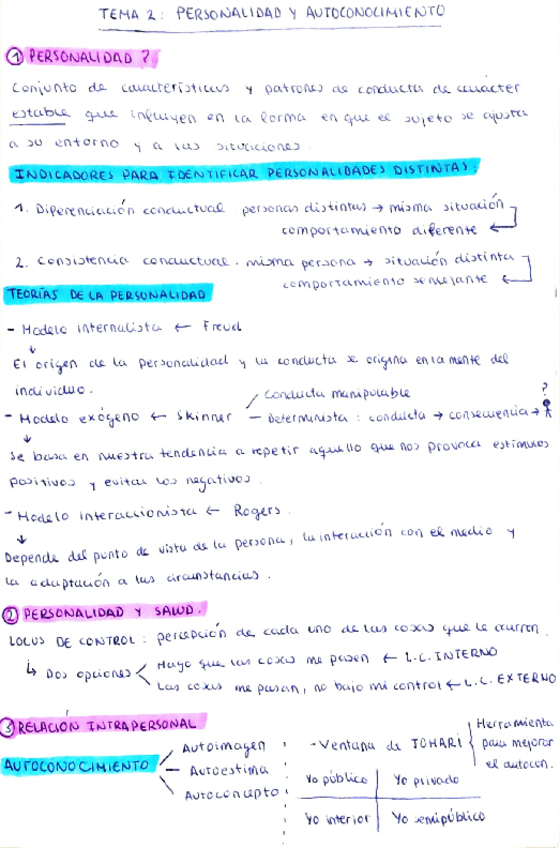 TEMA 2: PERSONALIDAD Y AUTOCONOCIMIENTO
① PERSONALIDAD?
Conjunto de características y patrones de conducta de carácter
estable que influyen en la forma en que el sujeto se ajusta
a su entorno y a las situaciones.
INDICADORES PARA IDENTIFICAR PERSONALIDADES DISTINTAS:
1. Diferenciación conductual personas distintas → misma situación
comportamiento diferente ←
2. Consistencia conductual. misma persona → situación distinta
comportamiento semejante ←
TEORÍAS DE LA PERSONALIDAD
- Modelo internalista ← Freud
↓
El origen de la personalidad y la conducta se origina en la mente del
individuo.
- Modelo exógeno ← Skinner / Conducta manipulable
— Determinista: conducta → consecuencia → ?
↓
Se basa en nuestra tendencia a repetir aquello que nos provoca estímulos
positivos y evitar los negativos.
- Modelo interaccionista ← Rogers.
↓
Depende del punto de vista de la persona, la interacción con el medio y
la adaptación a las circunstancias.
② PERSONALIDAD Y SALUD.
LOCUS DE CONTROL: percepción de cada uno de las cosas que le ocurren.
↳ Dos opciones < Hago que las cosas me pasen ← L.C. INTERNO
Las cosas me pasan, no bajo mi control ← L.C. EXTERNO
③ RELACIÓN INTRAPERSONAL
AUTOCONOCIMIENTO
Autoimagen
— Autoestima
Autoconcepto
- Ventana de JOHARI
Herramienta
para mejorar
el autocon.
Yo público | Yo privado
Yo interior | Yo semipúblico